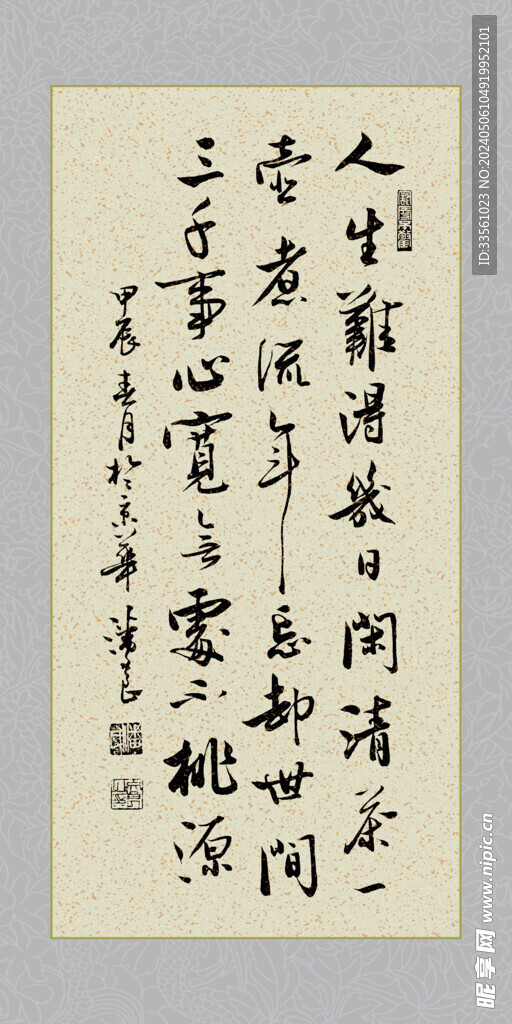 人生難得幾日閑清茶一
壺煮流年忘却世間
三千事心寬無處不桃源
甲辰春月於京華
ID:33561023 NO:20240506104919952101
昵享网 www.nipic.cn